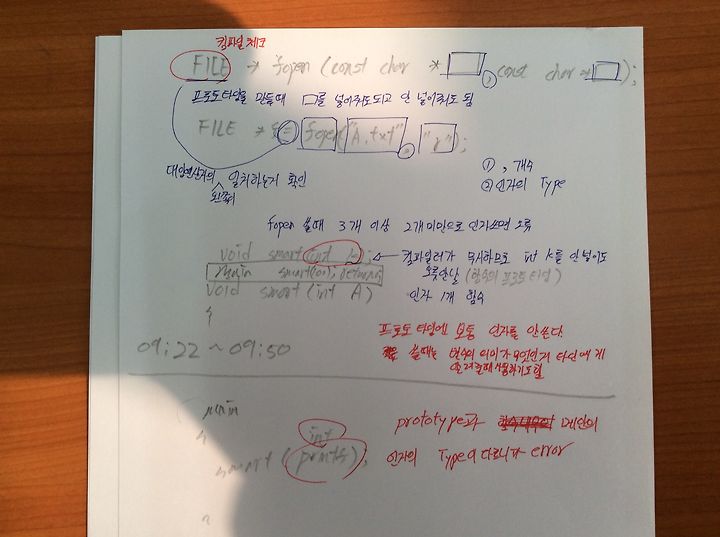 컴파일 체크
FILE * fopen (const char * , const char * );
프로토타입을 만들때 □를 넣어줘도되고 안 넣어줘도 됨
FILE * = fopen("A.txt", "r");
대입연산자의 일치하는거 확인
왼쪽의
① , 개수
② 인자의 Type
fopen 쓸때 3개 이상 2개미만으로 인자쓰면 오류
void smart(int );
컴파일러가 무시하므로 int 를 안 넣어도
main smart(0); return
오류안남 (함수의 프로토타입)
void smart(int A)
인자 1개 함수
{
프로토타입엔 보통 인자를 안쓴다.
09:22 ~ 09:50
쓸때는 변수의 의미가 무엇인지 타인에게
알려줄때 사용하기도함
main
{
int
smart (printf);
prototype과 메인의
인자의 Type이 다르니까 error